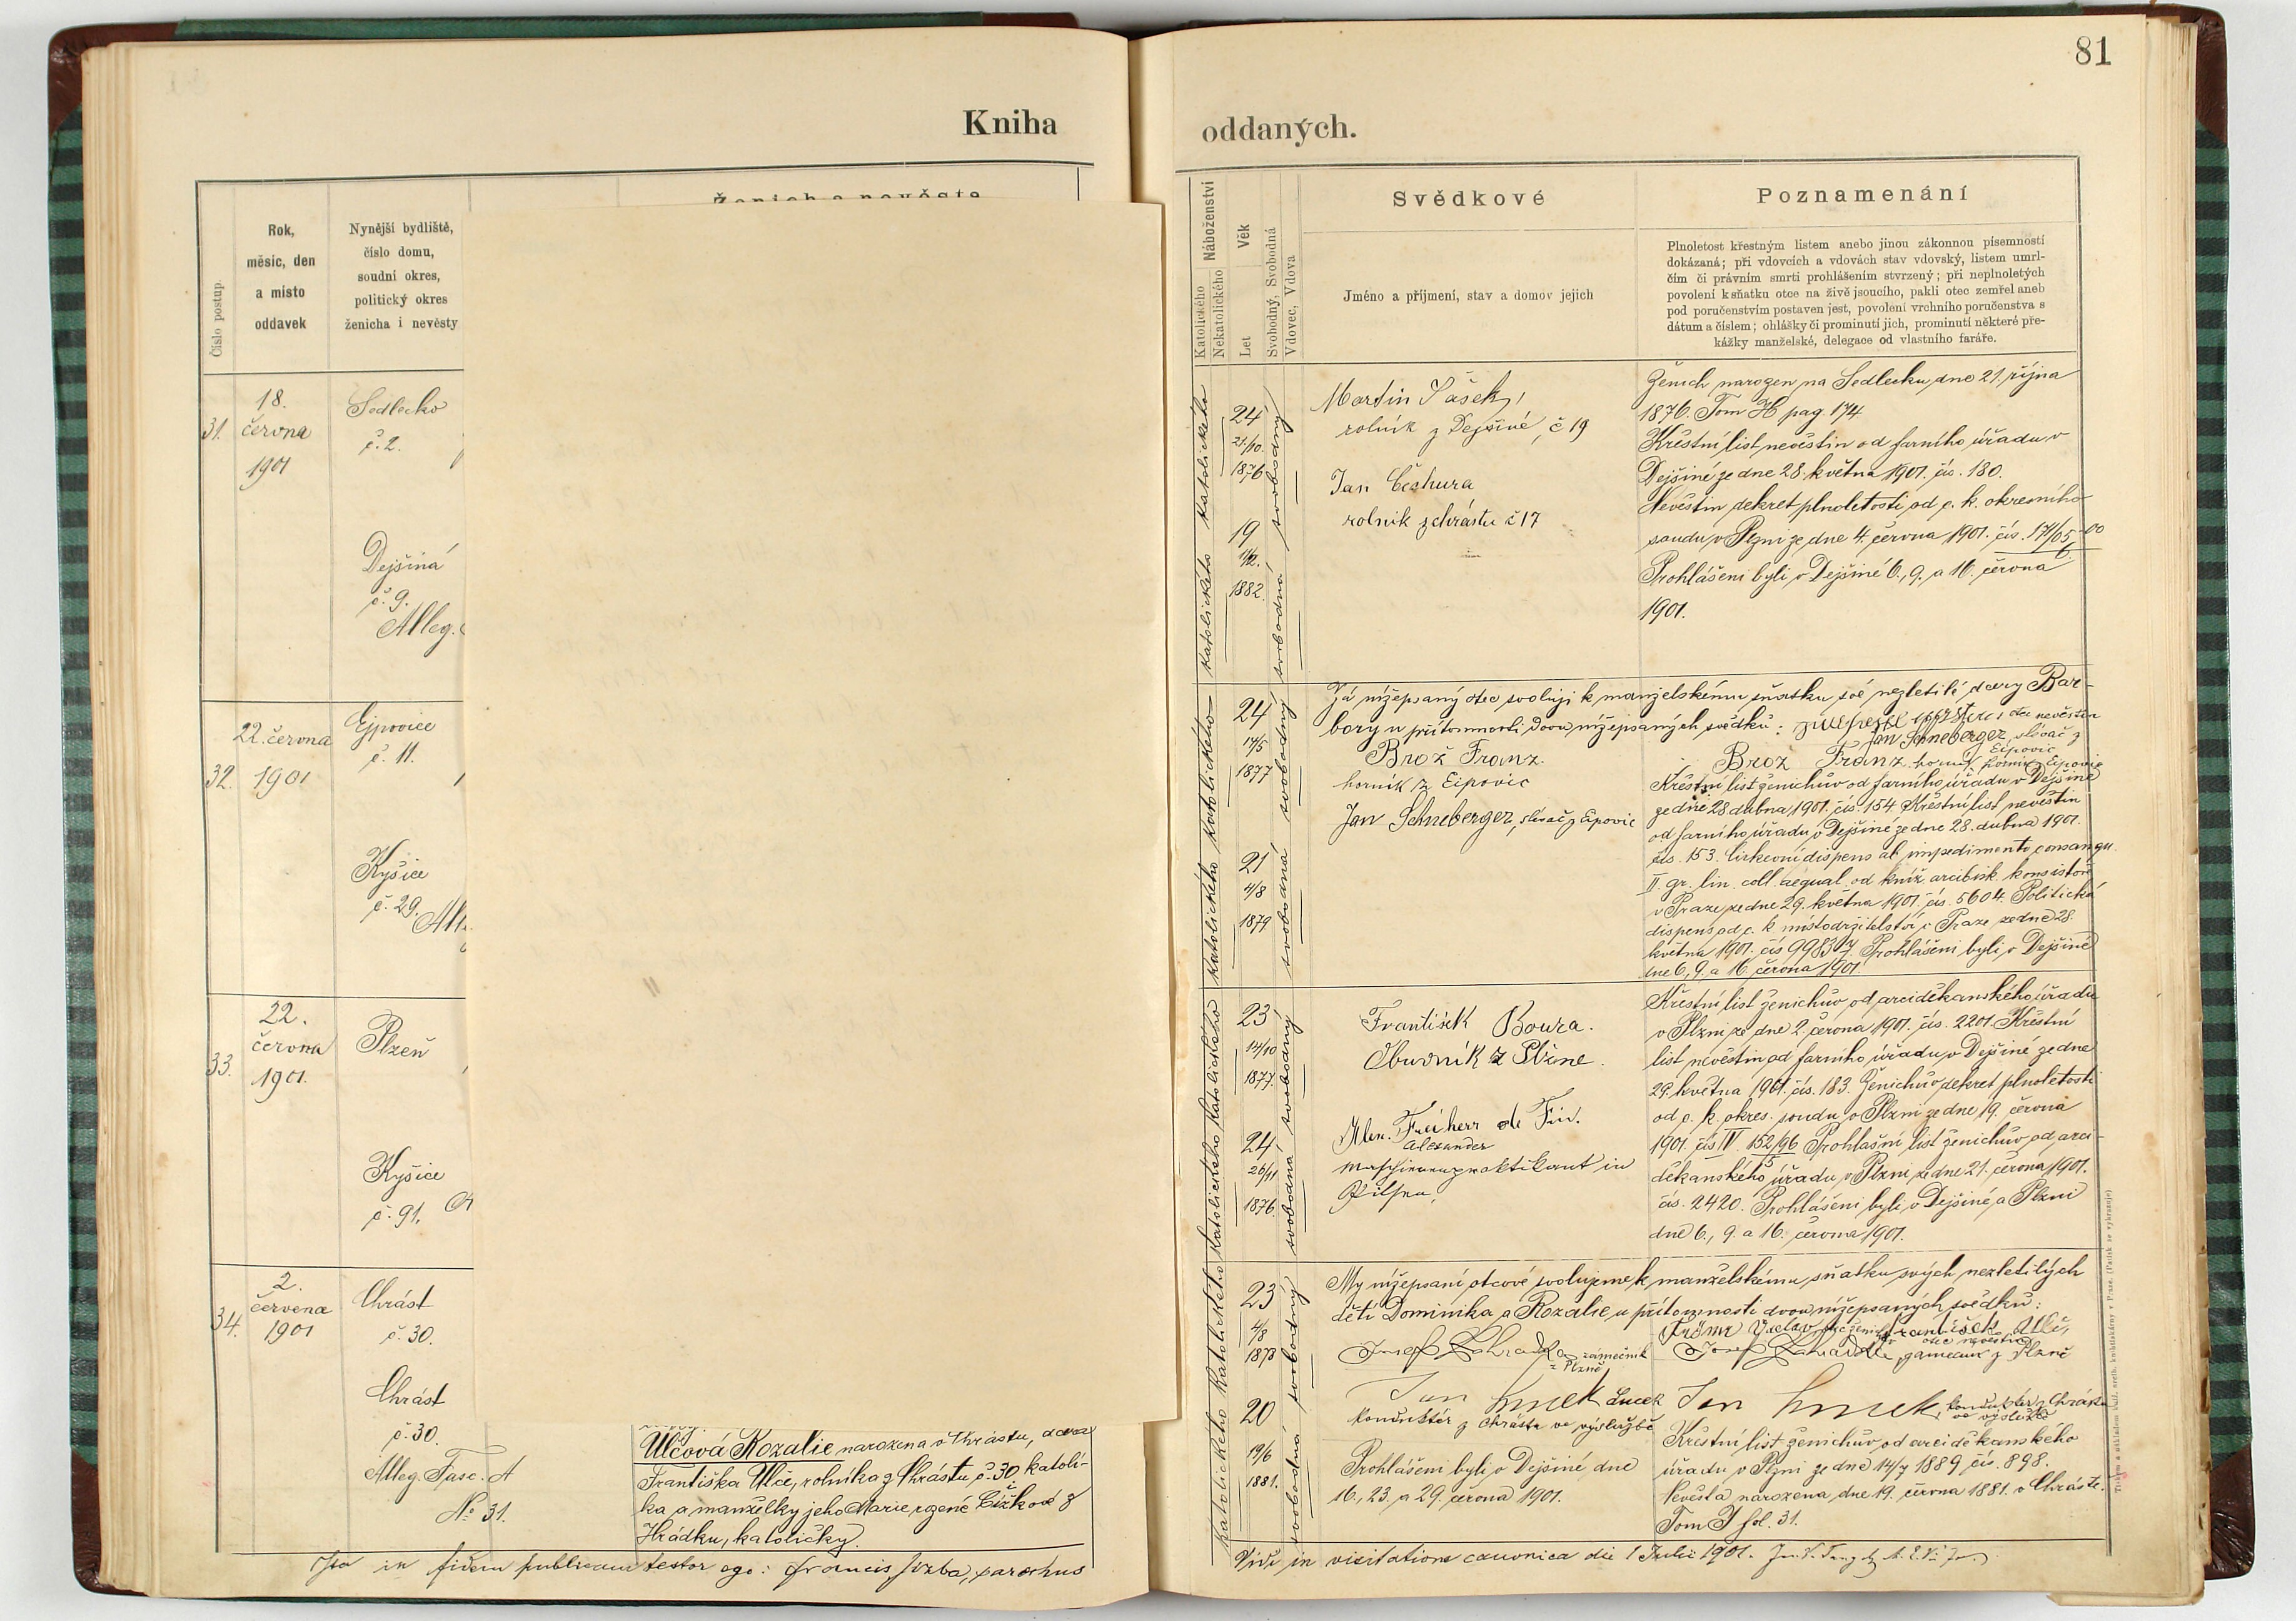 81
Kniha
oddaných.
Číslo postup.
Rok,
měsíc, den
a místo
oddavek
Nynější bydliště,
číslo domu,
soudní okres,
politický okres
ženicha i nevěsty
Ženich a nevěsta
31.
18.
června
1901
Sedlecko
č. 2.
Dejšiná
č. 9.
Alleg.
32.
22. června
1901
Ejpovice
č. 11.
Kyšice
č. 29.
33.
22.
června
1901.
Plzeň
Kyšice
č. 91.
34.
2.
července
1901
Chrást
č. 30.
Chrást
č. 30.
Alleg. Fasc. A
No 31.
Ulčová Rozalie narozena v Chrástu, dcera
Františka Ulče, rolníka z Chrástu č. 30 katolí-
ka a manželky jeho Marie, rozené Čížkové z
Hrádku, katoličky.
in fidem publicam testor ego: Francis, parochus
Náboženství
Katolického
Nekatolického
Věk
Let
Svobodný, Svobodná
Vdovec, Vdova
Svědkové
Jméno a příjmení, stav a domov jejich
Poznamenání
Plnoletost křestným listem anebo jinou zákonnou písemností
dokázaná; při vdovcích a vdovách stav vdovský, listem umrl-
čím či právním smrti prohlášením stvrzený; při neplnoletých
povolení k sňatku otce na živě jsoucího, pakli otec zemřel aneb
pod poručenstvím postaven jest, povolení vrchního poručenstva s
dátum a číslem; ohlášky či prominutí jich, prominutí některé pře-
kážky manželské, delegace od vlastního faráře.
katolického
24
21/10.
1876
svobodný
Martin Pašek,
rolník z Dejšiné, č 19
katolického
19
1882.
svobodná
Jan Čechura
rolník z chrástu č 17
Ženich narozen na Sedlecku dne 21. října
1876. Tom H pag. 174
Křestní list nevěstin od farního úřadu v
Dejšiné ze dne 28. května 1901. čís. 180.
Nevěstin dekret plnoletosti od c. k. okresního
soudu v Plzni ze dne 4. června 1901. čís.
Prohlášeni byli v Dejšiné 6., 9. a 16. června
1901.
katolického
24
14/5
1877
svobodný
Já nížepsaný otec svoluji k manželskému sňatku své nezletilé dcery Bar-
bory u přítomnosti dvou nížepsaných svědků: otec nevěstin
Jan Schneberger, slévač z
Eipovic
Brož Franz.
Brož Franz. horník z Eipovic
horník z Eipovic
Jan Schneberger, slévač z Eipovic
katolického
21
4/8
1879
svobodná
Křestní list ženichův od farního úřadu v Dejšiné
ze dne 28 dubna 1901. čís. 154 Křestní list nevěstin
od farního úřadu v Dejšiné ze dne 28. dubna 1901.
čís. 153. Církevní dispens ab impedimento consangu.
II. gr. lin. coll. aequal. od kníž. arcibisk. konsistoře
v Praze ze dne 29. května 1901. čís. 5604. Politická
dispens od c. k. místodržitelství v Praze ze dne 28.
května 1901. čís Prohlášeni byli v Dejšiné
dne 6., 9. a 16. června 1901.
katolického
23
14/10
1877.
svobodný
František Boura.
Obuvník z Plzne.
katolického
24
26/11
1876.
svobodná
Alex. Freiherr de Fin.
Alexander
Maschinenpraktikant in
Pilsen.
Křestní list ženichův od arciděkanského úřadu
v Plzni ze dne 2. června 1901. čís. 2201. Křestní
list nevěstin od farního úřadu v Dejšiné ze dne
29. května 1901. čís. 183. Ženichův dekret plnoletosti
od c. k. okres. soudu v Plzni ze dne 19. června
1901 čís IV 152/96 Prohlašní list ženichův od arci-
děkanského úřadu v Plzni ze dne 21. června 1901.
čís. 2420. Prohlášeni byli v Dejšiné a Plzni
dne 6., 9. a 16. června 1901.
katolického
23
4/8
1878
svobodný
My nížepsaní otcové svolujeme k manželskému sňatku svých nezletilých
dětí Dominika a Rozalie u přítomnosti dvou nížepsaných svědků:
František Ulč,
otec nevěstin
Josef Zahradka zámečník
z Plzně
Josef Zahradka, zámečník z Plzně
katolického
20
19/6
1881.
svobodná
Jan
Konduktér z Chrástu ve výslužbě
Jan konduktér z Chrástu
ve výslužbě
Prohlášeni byli v Dejšiné dne
16., 23. a 29. června 1901.
Křestní list ženichův od arciděkanského
úřadu v Plzni ze dne 14/7 1889 čís. 898.
Nevěsta narozena dne 19. června 1881. v Chrástě.
Tom I fol. 31.
Vidi in visitatione canonica die 1 Julii 1901.